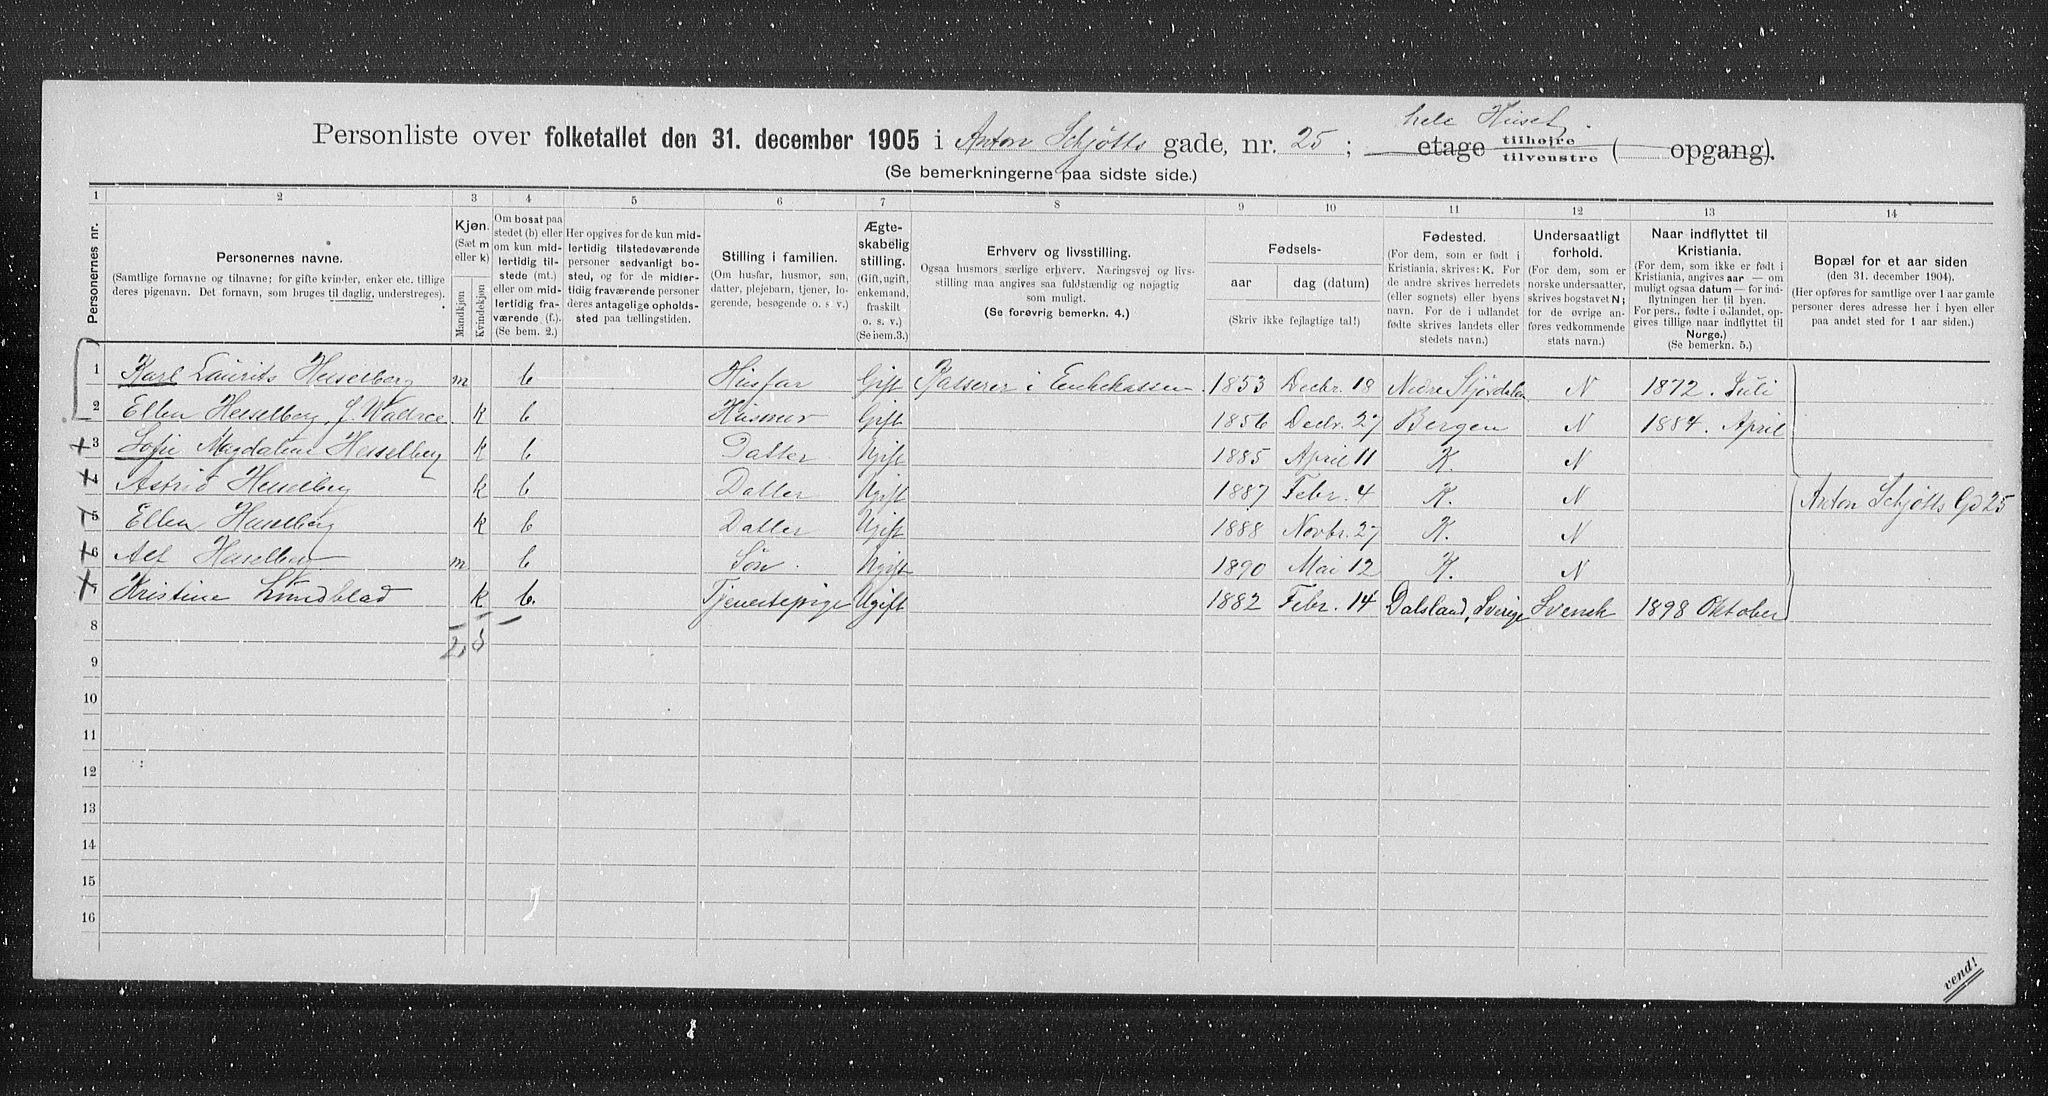 hele Huset.
Personliste over folketallet den 31. december 1905 i Anton Schjøtts gade, nr. 25 ; etage tilhøjre tilvenstre ( opgang).
(Se bemerkningerne paa sidste side.)
1 2 3 4 5 6 7 8 9 10 11 12 13 14
Personernes nr.
Personernes navne.
(Samtlige fornavne og tilnavne; for gifte kvinder, enker etc. tillige
deres pigenavn. Det fornavn, som bruges til daglig, understreges).
Kjøn.
(Sæt m
eller k)
Mandkjøn
Kvindekjøn
Om bosat paa
stedet (b) eller
om kun mid-
lertidig til-
stede (mt.)
eller om mid-
lertidig fra-
værende (f.).
(Se bem. 2.)
Her opgives for de kun mid-
lertidig tilstedeværende
personer sedvanlig bo-
sted, og for de midler-
tidig fraværende personer
deres antagelige opholds-
sted paa tællingstiden.
Stilling i familien.
(Om husfar, husmor, søn,
datter, plejebarn, tjener, lo-
gerende, besøgende o. s. v.)
Ægte-
skabelig
stilling.
(Gift, ugift,
enkemand,
fraskilt
o. s. v.)
(Se bem.3.)
Erhverv og livsstilling.
Ogsaa husmors særlige erhverv. Næringsvej og livs-
stilling maa angives saa fuldstændig og nøjagtig
som muligt.
(Se forøvrig bemerkn. 4.)
Fødsels-
aar dag (datum)
(Skriv ikke fejlagtige tal!)
Fødested.
(For dem, som er født i
Kristiania, skrives: K. For
de andre skrives herredets
(eller sognets) eller byens
navn. For de i udlandet
fødte skrives landets eller
stedets navn.)
Undersaatligt
forhold.
(For dem, som er
norske undersaatter,
skrives bogstavet N;
for de øvrige an-
føres vedkommende
stats navn.)
Naar indflyttet til
Kristiania.
(For dem, som ikke er født i
Kristiania, angives aar — om
muligt ogsaa datum — for ind-
flytningen her til byen.
For pers., fødte i udlandet, op-
gives tillige naar indflyttet til
Norge.)
(Se bemerkn. 5.)
Bopæl for et aar siden
(den 31. december 1904).
(Her opføres for samtlige over 1 aar gamle
personer deres adresse her i byen eller
paa andet sted for 1 aar siden.)
1 Karl Laurits Hesselberg m b Husfar Gift Kasserer i Enkekassen 1853 Decbr. 18 Nedre Stjørdalen N 1872. Juli
2 Ellen Hesselberg, f. k b Husmor Gift 1856 Decbr. 27 Bergen N 1884. April
3 Sofie Magdalene Hesselberg k b Datter Ugift 1885 April 11 K. N
4 Astrid Hesselberg k b Datter Ugift 1887 Febr. 4 K. N Anton Schjøtts Gd 25
5 Ellen Hesselberg k b Datter Ugift 1888 Novbr. 27 K. N
6 Hesselberg m b Søn. Ugift 1890 Mai 12 K. N
7 Kristine Lundblad k b. Tjenestepige Ugift 1882 Febr. 14 Dalsland, Sverige Svensk 1898 Oktober
8
9
10
11
12
13
14
15
16
vend!